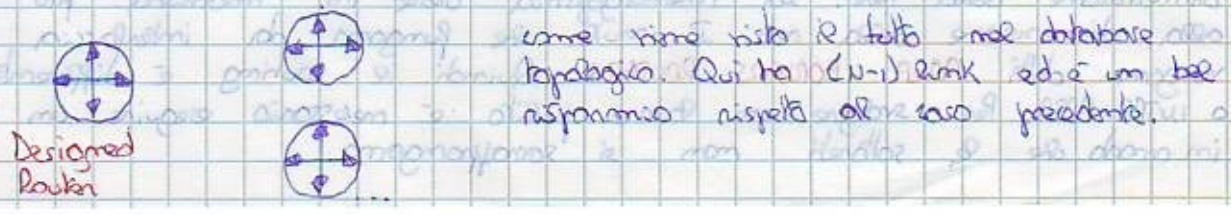 come viene visto il tutto nel database
topologico. Qui ho (N-1) link ed è un bel
risparmio rispetto al caso precedente.
Designed
Router
...